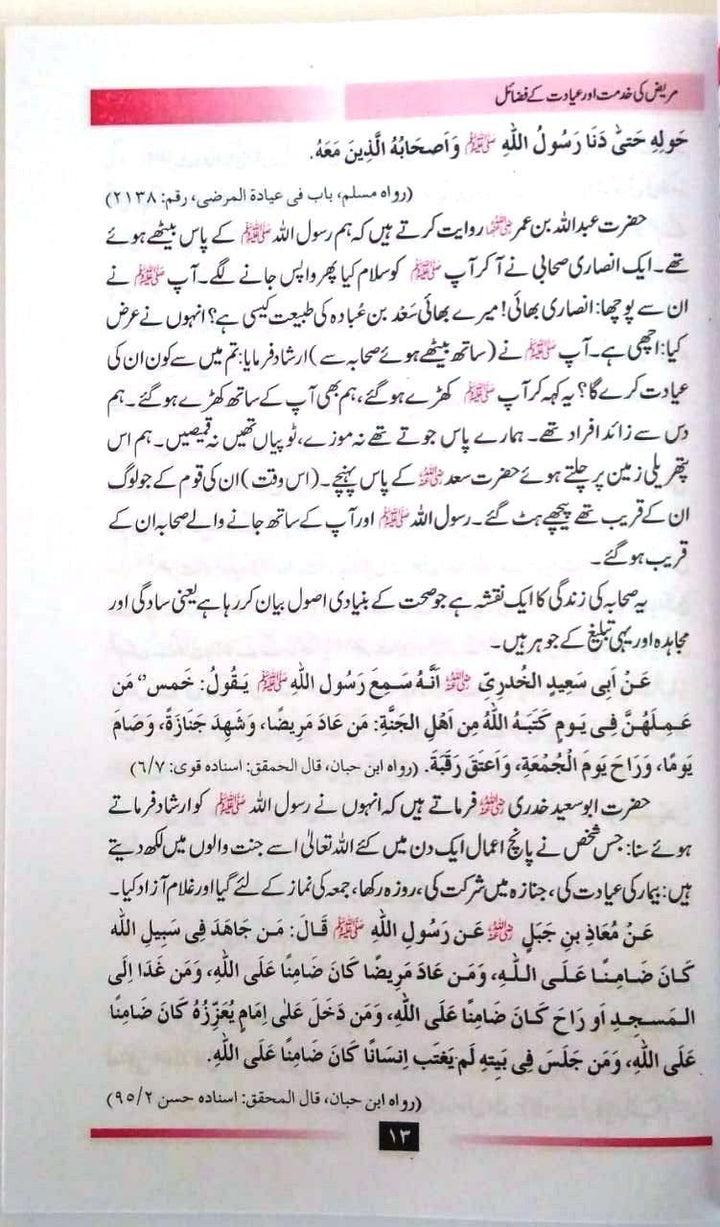 مریض کی خدمت اور عیادت کے فضائل
حَولِهِ حَتىّٰ دَنَا رَسُولُ اللّٰهِ ﷺ وَاَصحَابُهُ الَّذِينَ مَعَهُ.
(رواه مسلم، باب فى عيادة المرضى، رقم: ٢١٣٨)
حضرت عبداللہ بن عمر رضی اللہ عنہما روایت کرتے ہیں کہ ہم رسول اللہ ﷺ کے پاس بیٹھے ہوئے
تھے۔ ایک انصاری صحابی نے آکر آپ ﷺ کو سلام کیا پھر واپس جانے لگے۔ آپ ﷺ نے
ان سے پوچھا: انصاری بھائی! میرے بھائی سَعْد بن عُبادہ کی طبیعت کیسی ہے؟ انہوں نے عرض
کیا: اچھی ہے۔ آپ ﷺ نے (ساتھ بیٹھے ہوئے صحابہ سے) ارشاد فرمایا: تم میں سے کون ان کی
عیادت کرے گا؟ یہ کہہ کر آپ ﷺ کھڑے ہوگئے، ہم بھی آپ کے ساتھ کھڑے ہوگئے۔ ہم
دس سے زائد افراد تھے۔ ہمارے پاس جوتے تھے نہ موزے، ٹوپیاں تھیں نہ قمیصیں۔ ہم اس
پتھریلی زمین پر چلتے ہوئے حضرت سعد رضی اللہ عنہ کے پاس پہنچے۔ (اس وقت) ان کی قوم کے جو لوگ
ان کے قریب تھے پیچھے ہٹ گئے۔ رسول اللہ ﷺ اور آپ کے ساتھ جانے والے صحابہ ان کے
قریب ہوگئے۔
یہ صحابہ کی زندگی کا ایک نقشہ ہے جو صحت کے بنیادی اصول بیان کر رہا ہے یعنی سادگی اور
مجاہدہ اور یہی تبلیغ کے جوہر ہیں۔
عَنْ اَبِى سَعِيدٍ الخُدرِىِّ رضی اللہ عنہ اَنَّهُ سَمِعَ رَسُولَ اللّٰهِ ﷺ يَقُولُ: خَمس" مَن
عَمِلَهُنَّ فِى يَومٍ كَتَبَهُ اللّٰهُ مِن اَهْلِ الجَنَّةِ: مَن عَادَ مَرِيضًا، وَشَهِدَ جَنَازَةً، وَصَامَ
يَومًا، وَرَاحَ يَومَ الْجُمْعَةِ، وَاَعتَقَ رَقَبَةً. (رواه ابن حبان، قال الحمقق: اسناده قوى: ٦/٧)
حضرت ابوسعید خدری رضی اللہ عنہ فرماتے ہیں کہ انہوں نے رسول اللہ ﷺ کو ارشاد فرماتے
ہوئے سنا: جس شخص نے پانچ اعمال ایک دن میں کئے اللہ تعالیٰ اسے جنت والوں میں لکھ دیتے
ہیں: بیمار کی عیادت کی، جنازہ میں شرکت کی، روزہ رکھا، جمعہ کی نماز کے لئے گیا اور غلام آزاد کیا۔
عَنْ مُعَاذِ بنِ جَبَلٍ رضی اللہ عنہ عَن رَسُولِ اللّٰهِ ﷺ قَالَ: مَن جَاهَدَ فِى سَبِيلِ اللّٰه
كَانَ ضَامِنًا عَلَى اللّٰهِ، وَمَن عَادَ مَرِيضًا كَانَ ضَامِنًا عَلَى اللّٰهِ، وَمَن غَدَا اِلَى
المَسجِدِ اَو رَاحَ كَانَ ضَامِنًا عَلَى اللّٰهِ، وَمَن دَخَلَ عَلٰى اِمَامٍ يُعَزِّزُهُ كَانَ ضَامِنًا
عَلَى اللّٰهِ، وَمَن جَلَسَ فِى بَيتِهِ لَم يَغتَب اِنسَانًا كَانَ ضَامِنًا عَلَى اللّٰهِ.
(رواه ابن حبان، قال المحقق: اسناده حسن ٩٥/٢)
١٣